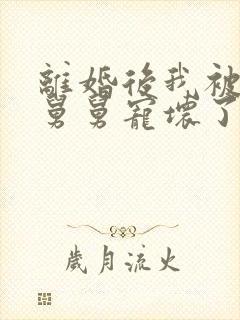 離婚後我被
舅舅寵壞了
歲月流火